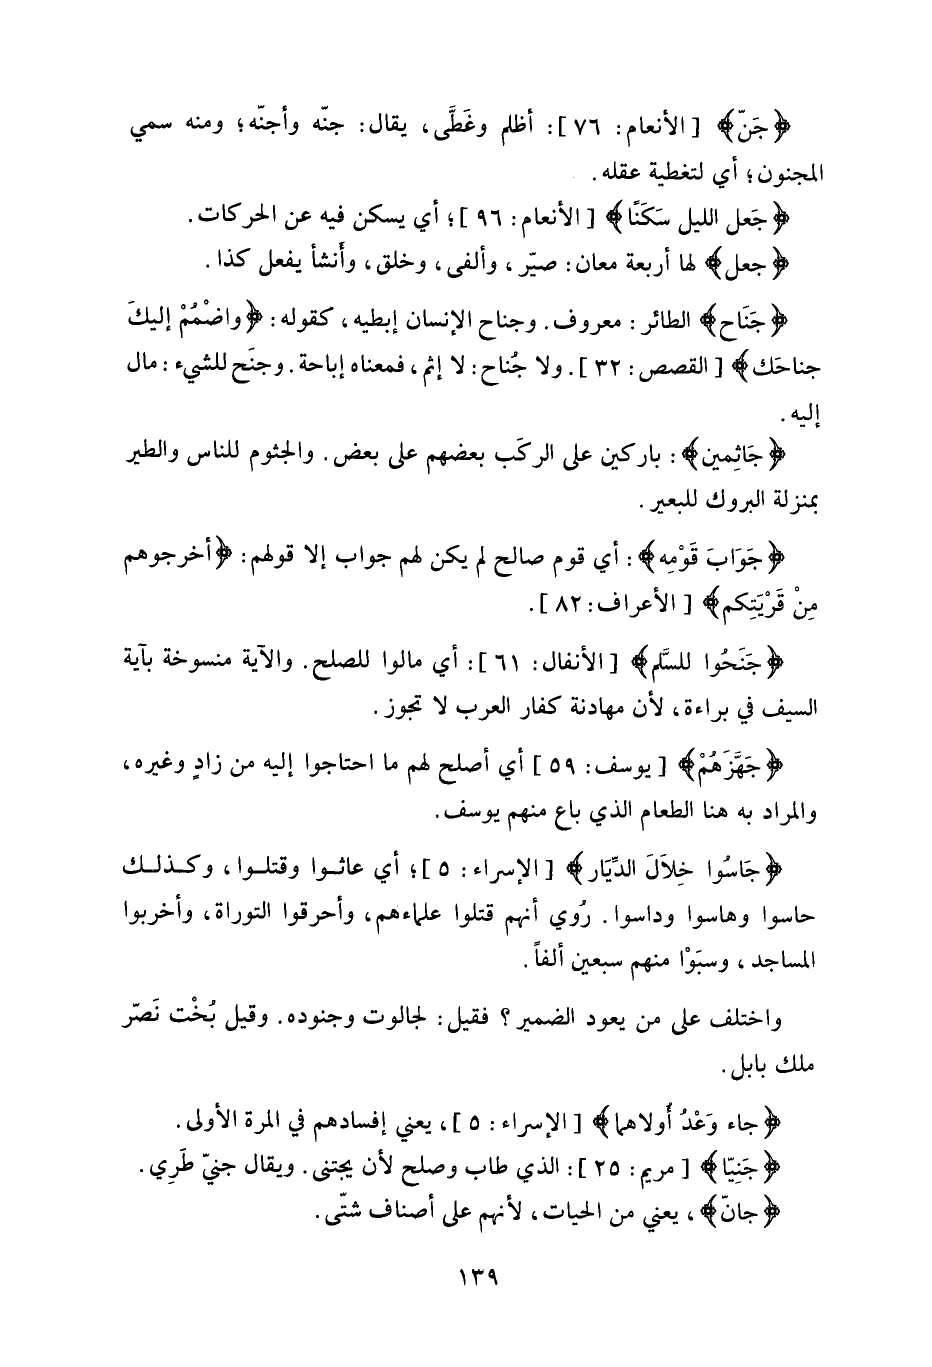 ﴿جَنّ﴾ [ الأنعام: ٧٦ ]: أظلم وغَطَّى، يقال: جنّه وأجنّه؛ ومنه سمي
المجنون؛ أي لتغطية عقله.
﴿جَعل الليل سَكَنًا﴾ [ الأنعام: ٩٦ ]؛ أي يسكن فيه عن الحركات.
﴿جعل﴾ لها أربعة معان: صيّر، وألفى، وخلق، وأَنشأ يفعل كذا.
﴿جَنَاح﴾ الطائر: معروف. وجناح الإنسان إبطيه، كقوله: ﴿واضْمُمْ إليكَ
جناحَك﴾ [ القصص: ٣٢ ]. ولا جُناح: لا إثم، فمعناه إباحة. وجنَح للشيء: مال
إليه.
﴿جَاثِمين﴾: باركين على الركَب بعضهم على بعض. والجثوم للناس والطير
بمنزلة البروك للبعير.
﴿جَوَابَ قَوْمِه﴾: أي قوم صالح لم يكن لهم جواب إلا قولهم: ﴿أخرجوهم
مِنْ قَرْيَتِكم﴾ [ الأعراف: ٨٢ ].
﴿جَنَحُوا للسَّلم﴾ [ الأنفال: ٦١ ]: أي مالوا للصلح. والآية منسوخة بآية
السيف في براءة، لأن مهادنة كفار العرب لا تجوز.
﴿جَهَّزَهُمْ﴾ [ يوسف: ٥٩ ] أي أصلح لهم ما احتاجوا إليه من زادٍ وغيره،
والمراد به هنا الطعام الذي باع منهم يوسف.
﴿جَاسُوا خِلاَلَ الدِّيَار﴾ [ الإسراء: ٥ ]؛ أي عاثوا وقتلوا، وكذلك
حاسوا وهاسوا وداسوا. رُوي أنهم قتلوا علماءهم، وأحرقوا التوراة، وأخربوا
المساجد، وسبَوْا منهم سبعين ألفاً.
واختلف على من يعود الضمير؟ فقيل: لجالوت وجنوده. وقيل بُخْت نَصّر
ملك بابل.
﴿جاء وَعْدُ أُولاهما﴾ [ الإسراء: ٥ ]، يعني إفسادهم في المرة الأولى.
﴿جَنِيّا﴾ [ مريم: ٢٥ ]: الذي طاب وصلح لأن يجتنى. ويقال جنيّ طَرِي.
﴿جانّ﴾، يعني من الحيات، لأنهم على أصناف شتّى.
١٣٩